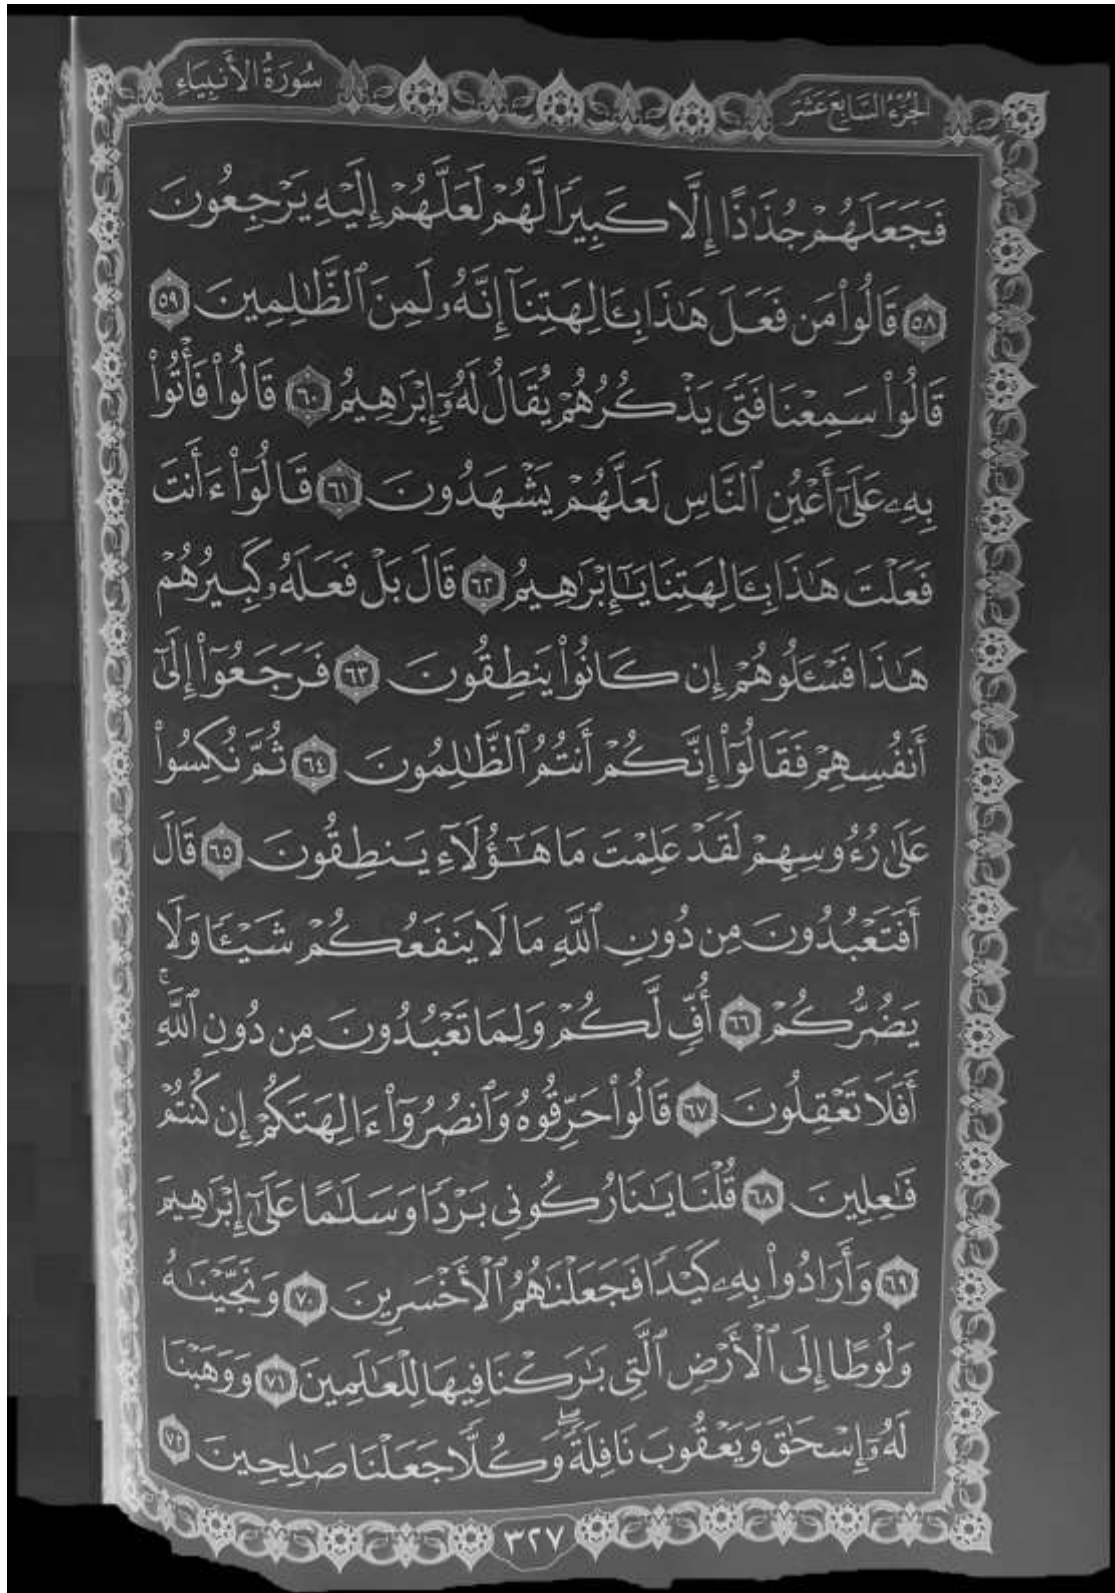 سُورَةُ الأَنبِيَاء
الجُزْءُ السَّابِعَ عَشَرَ
فَجَعَلَهُمْ جُذَٰذًا إِلَّا كَبِيرًا لَّهُمْ لَعَلَّهُمْ إِلَيْهِ يَرْجِعُونَ
٥٨ قَالُوا۟ مَن فَعَلَ هَٰذَا بِـَٔالِهَتِنَآ إِنَّهُۥ لَمِنَ ٱلظَّٰلِمِينَ ٥٩
قَالُوا۟ سَمِعْنَا فَتًى يَذْكُرُهُمْ يُقَالُ لَهُۥٓ إِبْرَٰهِيمُ ٦٠ قَالُوا۟ فَأْتُوا۟
بِهِۦ عَلَىٰٓ أَعْيُنِ ٱلنَّاسِ لَعَلَّهُمْ يَشْهَدُونَ ٦١ قَالُوٓا۟ ءَأَنتَ
فَعَلْتَ هَٰذَا بِـَٔالِهَتِنَا يَٰٓإِبْرَٰهِيمُ ٦٢ قَالَ بَلْ فَعَلَهُۥ كَبِيرُهُمْ
هَٰذَا فَسْـَٔلُوهُمْ إِن كَانُوا۟ يَنطِقُونَ ٦٣ فَرَجَعُوٓا۟ إِلَىٰٓ
أَنفُسِهِمْ فَقَالُوٓا۟ إِنَّكُمْ أَنتُمُ ٱلظَّٰلِمُونَ ٦٤ ثُمَّ نُكِسُوا۟
عَلَىٰ رُءُوسِهِمْ لَقَدْ عَلِمْتَ مَا هَٰٓؤُلَآءِ يَنطِقُونَ ٦٥ قَالَ
أَفَتَعْبُدُونَ مِن دُونِ ٱللَّهِ مَا لَا يَنفَعُكُمْ شَيْـًٔا وَلَا
يَضُرُّكُمْ ٦٦ أُفٍّ لَّكُمْ وَلِمَا تَعْبُدُونَ مِن دُونِ ٱللَّهِ ۚ
أَفَلَا تَعْقِلُونَ ٦٧ قَالُوا۟ حَرِّقُوهُ وَٱنصُرُوٓا۟ ءَالِهَتَكُمْ إِن كُنتُمْ
فَٰعِلِينَ ٦٨ قُلْنَا يَٰنَارُ كُونِى بَرْدًا وَسَلَٰمًا عَلَىٰٓ إِبْرَٰهِيمَ
٦٩ وَأَرَادُوا۟ بِهِۦ كَيْدًا فَجَعَلْنَٰهُمُ ٱلْأَخْسَرِينَ ٧٠ وَنَجَّيْنَٰهُ
وَلُوطًا إِلَى ٱلْأَرْضِ ٱلَّتِى بَٰرَكْنَا فِيهَا لِلْعَٰلَمِينَ ٧١ وَوَهَبْنَا
لَهُۥٓ إِسْحَٰقَ وَيَعْقُوبَ نَافِلَةً ۖ وَكُلًّا جَعَلْنَا صَٰلِحِينَ ٧٢
٣٢٧